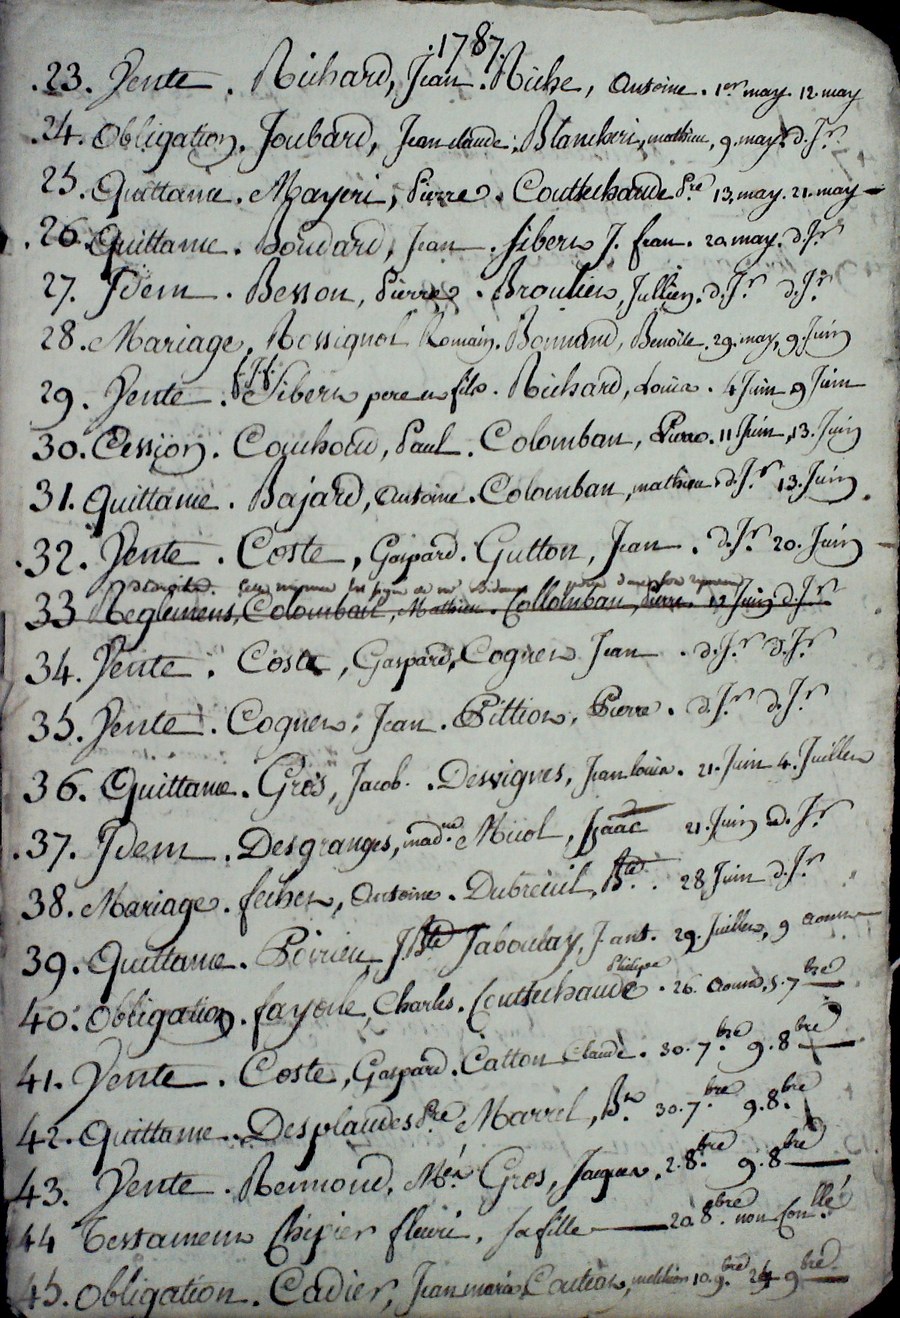 .1787.
.23. Vente . Richard, Jean . Riche, Antoine . 1er may. 12. may
24. Obligation. Joubard, Jean claude . Blancheri, mathieu, 9. may. d. Jr
25. Quittance . Mayeri, Pierre . Coutuchaude Pre 13. may. 21. may
.26. Quittance . Boudard, Jean . Sibert J. fran. 20. may. d. Jr
27. Idem . Besson, Pierre . Broulier, Jullien. d. Jr d. Jr
28. Mariage, Rossignol Romain. Bonnand, Benoite. 29. may, 9. Juin
29. Vente . Sibert pere et fils . Richard, Louis . 4 Juin 9 Juin
30. Cession . Couhoud, Paul . Colomban, Pierre. 11. Juin, 13. Juin
31. Quittance . Bajard, Antoine . Colomban, mathieu . d. Jr 13. Juin
.32. Vente . Coste, Gaspard . Gutton, Jean . d. Jr 20. Juin
33 Reglement, Colomban, Mathieu . Collomban, Pierre . 12 Juin d. Jr
34. Vente . Coste, Gaspard, Cognet Jean . d. Jr d. Jr
35. Vente . Cognet, Jean . Pittion, Pierre . d. Jr d. Jr
36. Quittance . Gros, Jacob . Desvignes, Jean louis . 21. Juin 4. Juillet
.37. Idem . Desgranges, made Micol, Isaac 21. Juin d. Jr
38. Mariage . fechet, Antoine . Dubreuil, Bte . 28 Juin d. Jr
39. Quittance . Poirieu J. Bte Jaboulay, J. ant. 29. Juillet, 9 aoust
Philippe
40. Obligation . fayolle, Charles . Coutuchaude . 26. aoust, 5. 7bre
41. Vente . Coste, Gaspard . Catton Claude . 30. 7bre 9. 8bre
42. Quittance . Desplaudes Pre Marrel, Bte 30. 7bre 9. 8bre
43. Vente . Remond, Gros, Jaques . 2. 8bre 9. 8bre
44 Testament Chipier fleuri, sa fille 20. 8bre non Conllé
45. Obligation . Cadier, Jean marie 10. 9bre 24 9bre